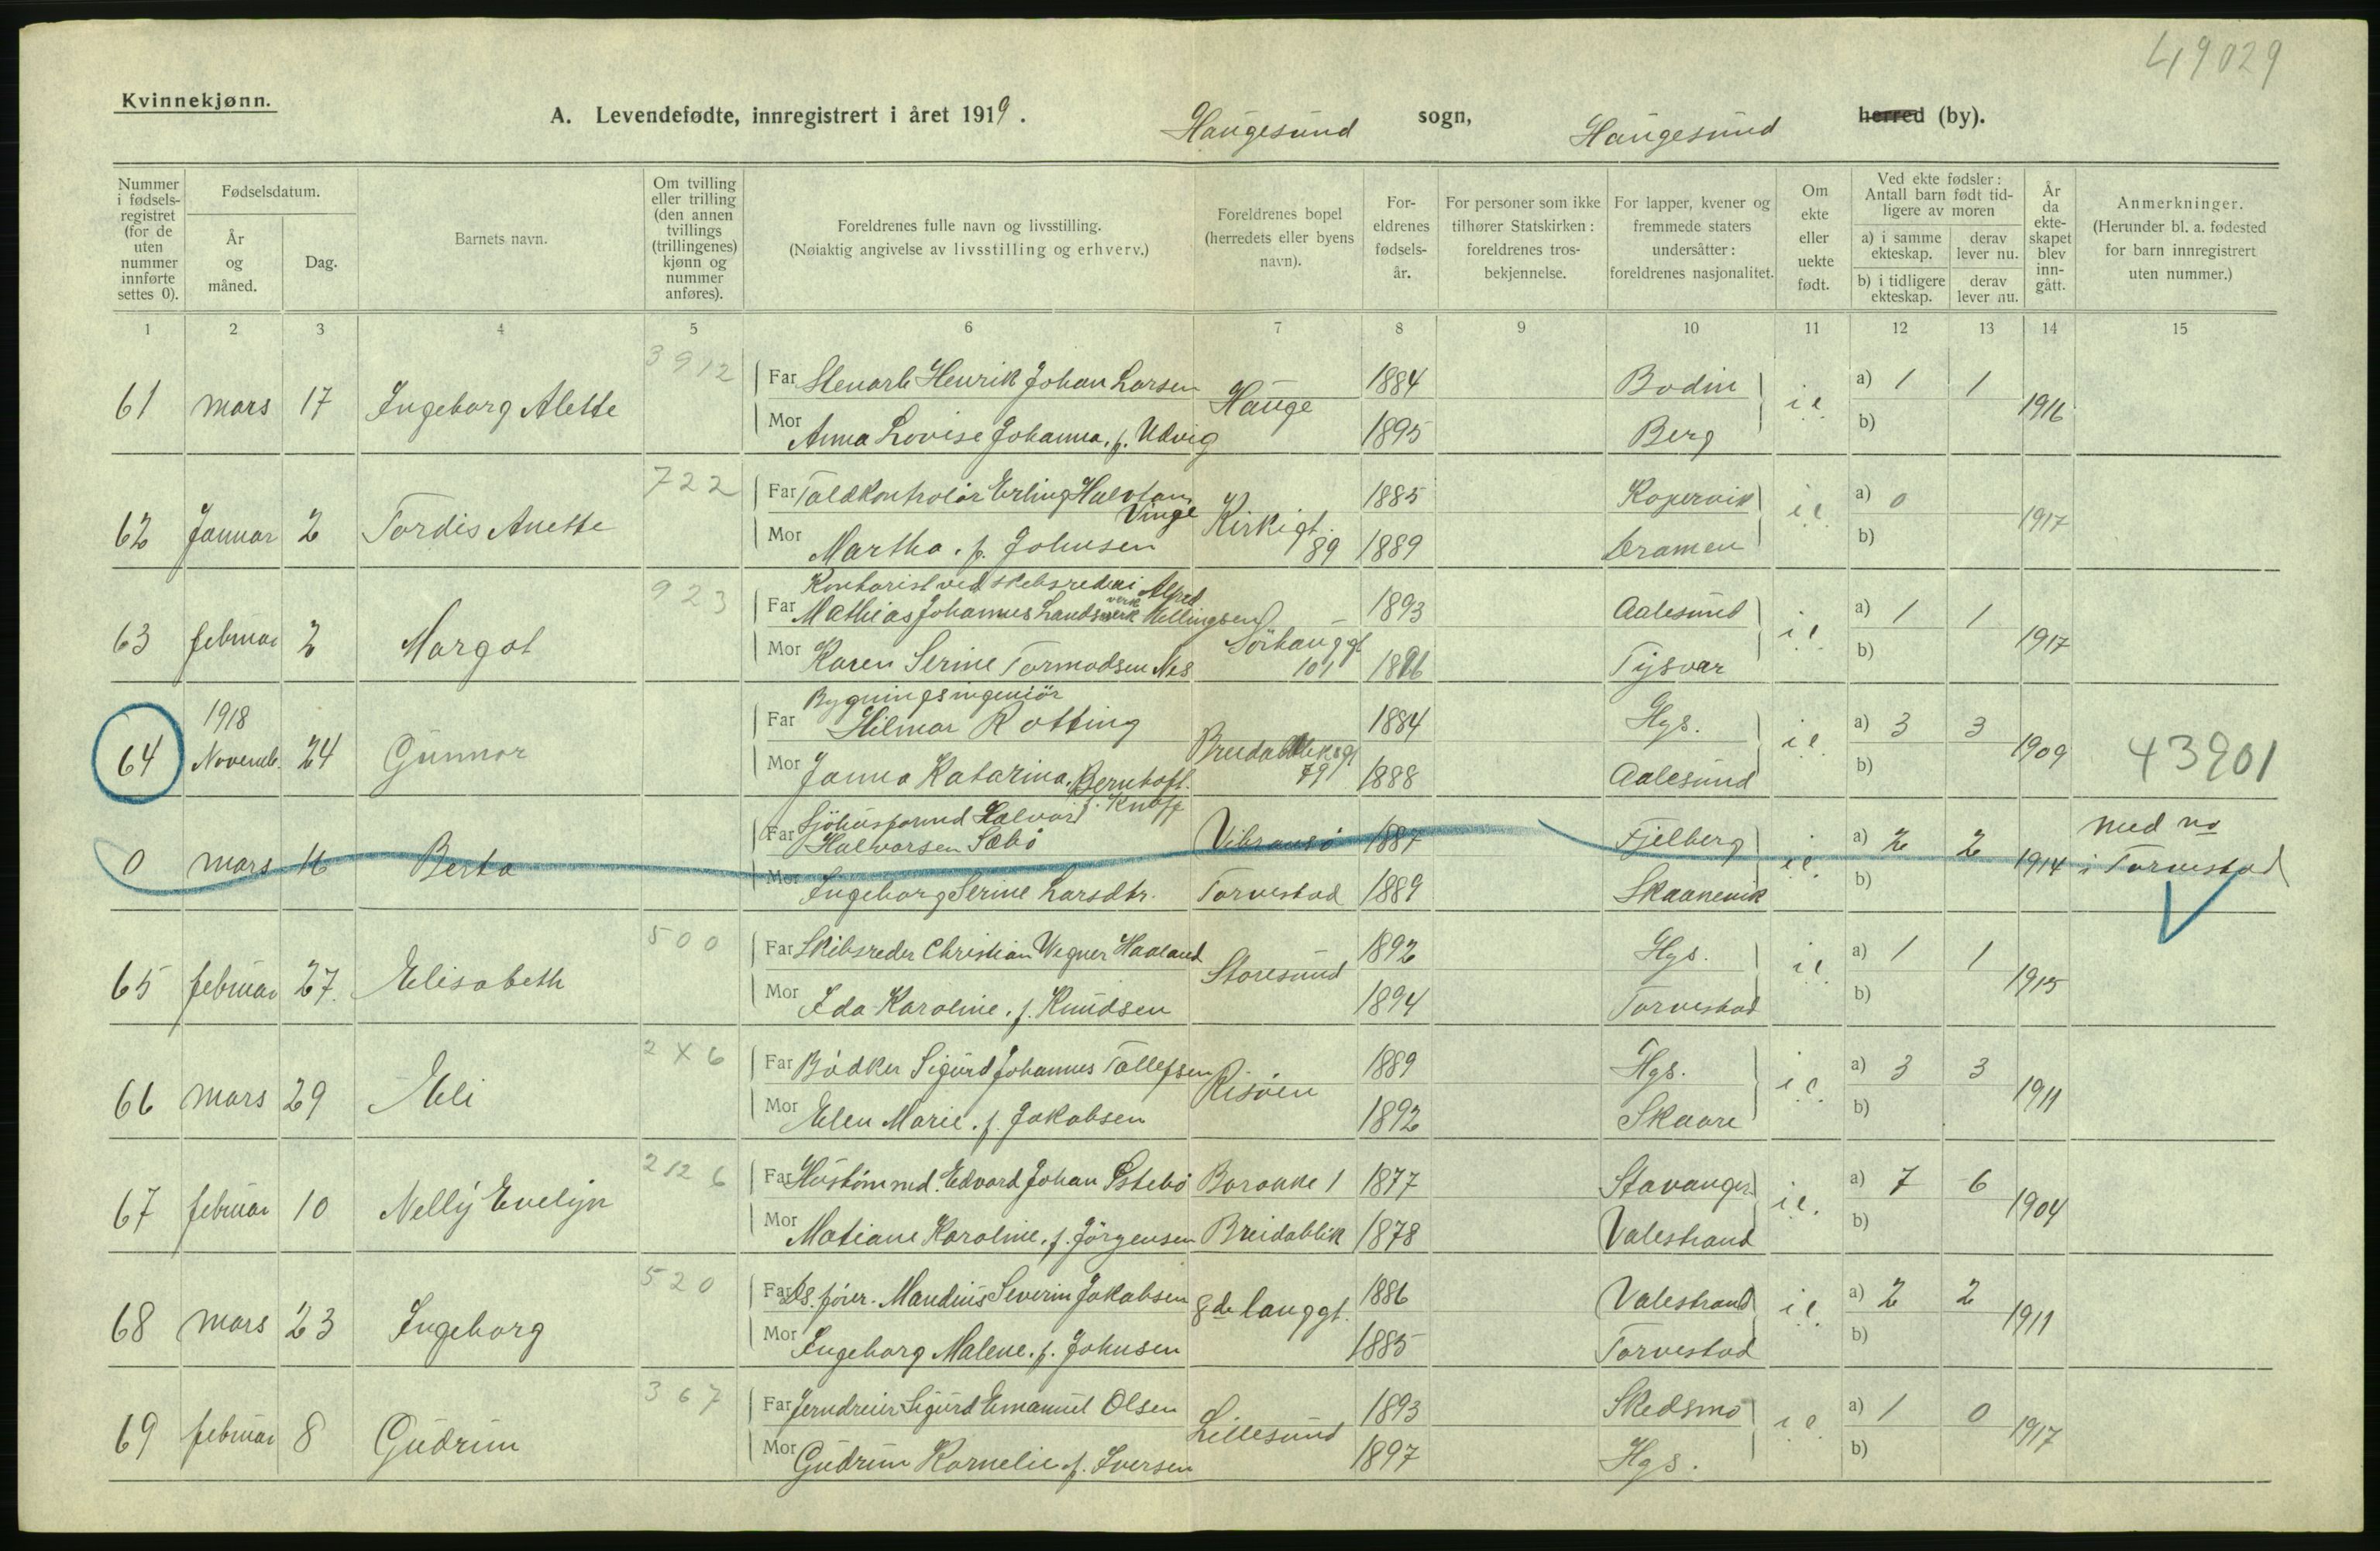 49029
Kvinnekjønn.
A. Levendefødte, innregistrert i året 1919. Haugesund sogn, Haugesund herred (by).
Nummer i fødselsregistret (for de uten nummer innførte settes 0).
Fødselsdatum.
År og måned.
Dag.
Barnets navn.
Om tvilling eller trilling (den annen tvillings (trillingenes) kjønn og nummer anføres).
Foreldrenes fulle navn og livsstilling.
(Nøiaktig angivelse av livsstilling og erhverv.)
Foreldrenes bopel (herredets eller byens navn).
Foreldrenes fødselsår.
For personer som ikke tilhører Statskirken: foreldrenes trosbekjennelse.
For lapper, kvener og fremmede staters undersåtter: foreldrenes nasjonalitet.
Om ekte eller uekte født.
Ved ekte fødsler: Antall barn født tidligere av moren
a) i samme ekteskap.
derav lever nu.
b) i tidligere ekteskap.
derav lever nu.
År da ekteskapet blev inngått.
Anmerkninger.
(Herunder bl. a. fødested for barn innregistrert uten nummer.)
1 2 3 4 5 6 7 8 9 10 11 12 13 14 15
3912
Far Stenarb Henrik Johan Larsen 1884 Bodin a) 1 1
61 mars 17 Ingeborg Alette Hauge i e. 1916
Mor Anna Lovise Johanna, f. Udvig 1895 Berg b)
722
Far Toldkontrolør Erling Halvtan Vinge 1885 Kopervik a) 0
62 Januar 2 Tordis Anette Kirkigt. 89 i e. 1917
Mor Martha, f. Johnsen 1889 Dramen b)
923
Kontorist ved skibsrederi Alfred
Far Mathias Johannes Landsverk Hellingsen 1893 Aalesund a) 1 1
verk
63 februar 2 Margot Sørhauggt 101 i e. 1917
Mor Karen Serine Tormodsen Nes Tysvær b)
Bygningsingeniør
1918
Far Hilmar Rotting 1884 Hgs. a) 3 3
64 Novemb. 24 Gunnor 79 i e. 1909 43901
Mor Janna Katarina, Bernhoft. f. Knoff 1888 Aalesund b)
Sjøhusformd Halvard
Far Halvorsen Sæbø Vibransø 1887 Fjelberg a) 2 2 med no
0 mars 16 Berta i e. 1914 i Torvestad
Mor Ingeborg Serine Larsdtr. Torvestad 1889 Skaanevik b)
500
Far Skibsreder Christian Wegner Haaland 1892 Hgs. a) 1 1
65 februar 27. Elisabeth Storesund i e. 1915
Mor Ida Karoline, f. Knudsen 1894 Torvestad b)
2 X 6
Far Bødker Sigurd Johannes Tollefsen 1889 Hgs. a) 3 3
66 mars 29 Eli Risøen i e. 1911
Mor Elen Marie, f. Jakobsen 1892 Skaare b)
2126
Far Hustømmd. Edvard Johan Østebø Barakke 1 1877 Stavanger a) 7 6
67 februar 10 Nelly Evelyn i e. 1904
Mor Matiane Karoline, f. Jørgensen Breidablik 1878 Valestrand b)
520
Far Ds. fører. Mandius Severin Jakobsen 1886 Valestrand a) 2 2
68 mars 23 Ingeborg 8de langgt. i e. 1911
Mor Ingeborg Malene, f. Johnsen 1885 Torvestad b)
367
Far Jerndreier Sigurd Emanuel Olsen 1893 Skedsmo a) 1 0
69 februar 8 Gudrun Lillesund i e. 1917
Mor Gudrun Kornelie f. Iversen 1897 Hgs. b)